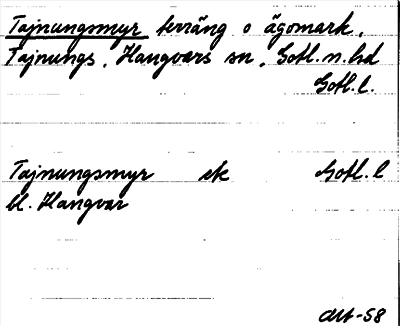 Tajnungsmyr terräng o ägomark,
Tajnungs, Hangvars sn, Gotl. n. hd
Gotl. l.
Tajnungsmyr ek Gotl. l
bl. Hangvar
-58